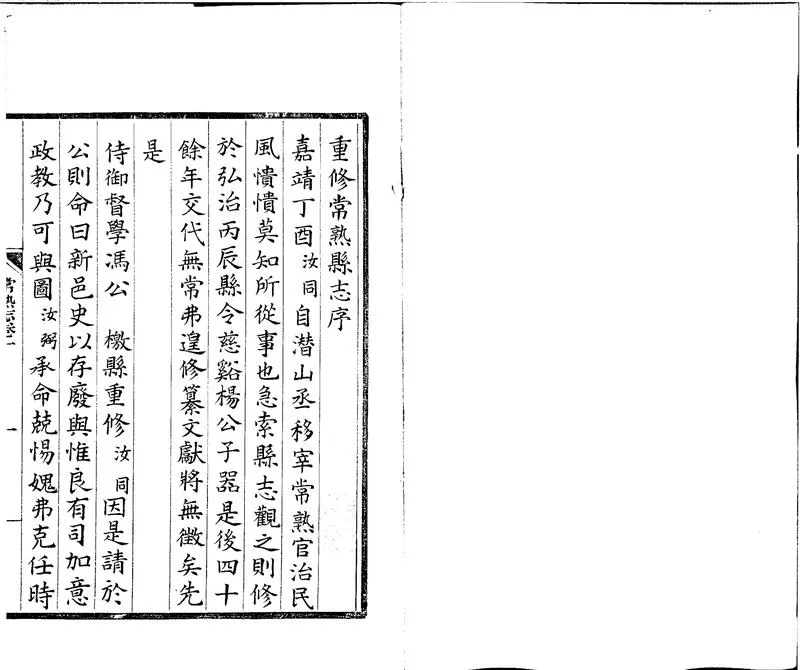 重修常熟縣志序
嘉靖丁酉汝同自潛山丞移宰常熟官治民
風憒憒莫知所從事也急索縣志觀之則修
於弘治丙辰縣令慈谿楊公子器是後四十
餘年交代無常弗遑修纂文獻將無徵矣先
是
侍御督學馮公 檄縣重修汝同因是請於
公則命曰新邑史以存廢與惟良有司加意
政教乃可與圖汝弼承命兢惕媿弗克任時
常熟志卷一
一